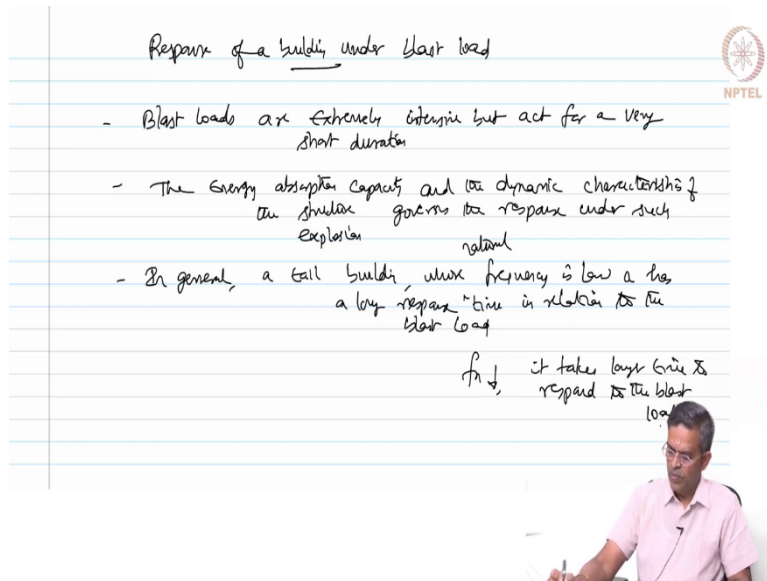 Response of a building under blast load
NPTEL
- Blast loads are extremely intensive but act for a very
short duration
- The energy absorption capacity and the dynamic characteristics of
the structure governs the response under such
explosion
natural
- In general, a tall building, whose frequency is low a has
a long response time in relation to the
blast load
fn ↓, it takes longer time to
respond to the blast
load